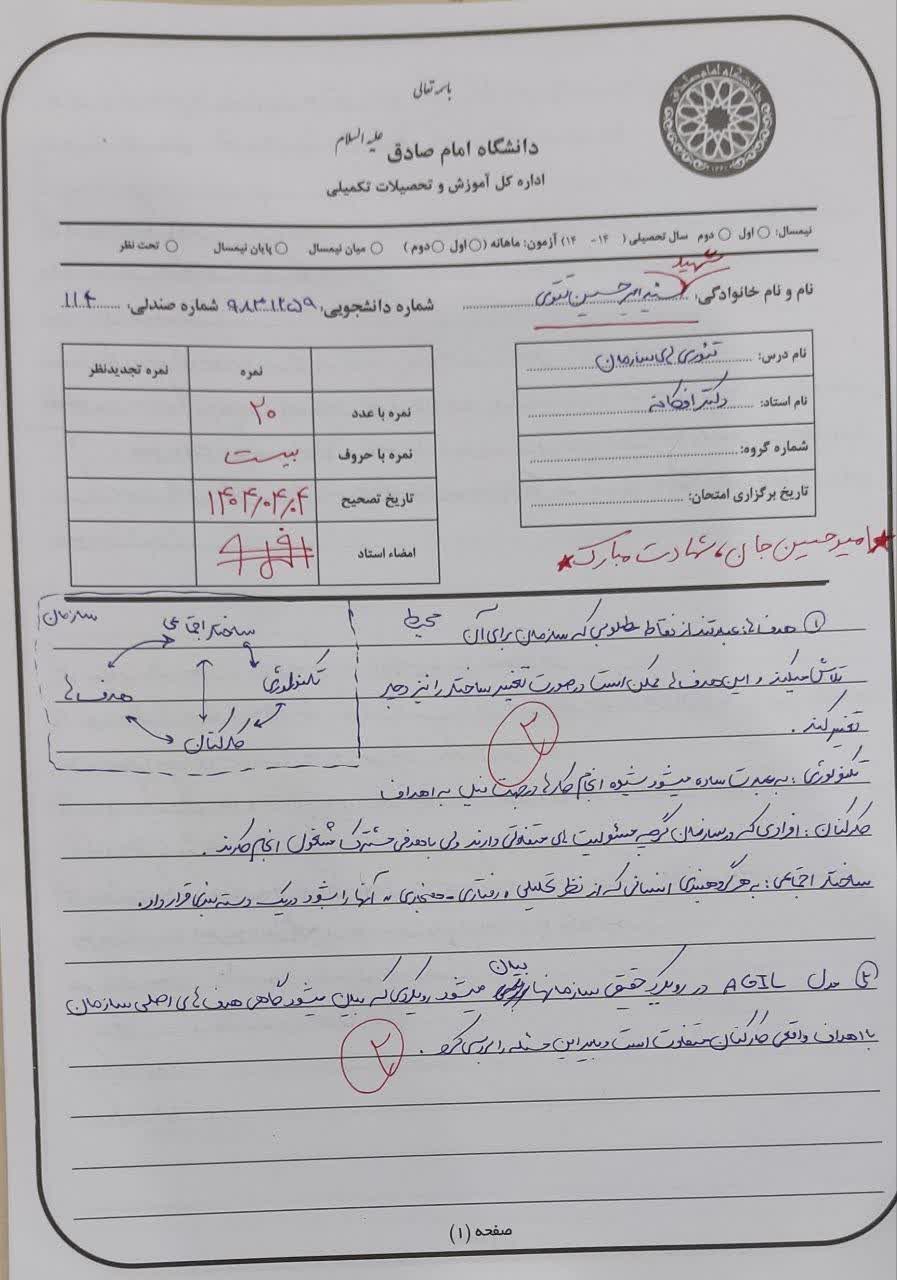 باسمه تعالی
دانشگاه امام صادق علیه السلام
اداره کل آموزش و تحصیلات تکمیلی
نیمسال: ○ اول ○ دوم سال تحصیلی ( ۱۴ - ۱۴) آزمون: ماهانه (○ اول ○ دوم ) ○ میان نیمسال ○ پایان نیمسال ○ تحت نظر
شهید
نام و نام خانوادگی: سید امیرحسین تقوی شماره دانشجویی: ۹۸۳۱۲۵۹ شماره صندلی: ۱۱۴
نام درس: تئوری های سازمان
نام استاد: دکتر افخانه
شماره گروه:
تاریخ برگزاری امتحان:
نمره نمره تجدیدنظر
نمره با عدد ۲۰
نمره با حروف بیست
تاریخ تصحیح ۱۴۰۴/۰۴/۰۴
امضاء استاد
امیرحسین جان، شهادت مبارک
سازمان
محیط
ساختار اجتماعی
هدف ها
تکنولوژی
کارکنان
① هدف ها: عبارتند از نقاط مطلوبی که سازمان برای آن
تلاش میکند و این هدف ها ممکن است در صورت تغییر ساختار را نیز دچار
تغییر کند.
۲
تکنولوژی: به عبارت ساده میشود شیوه انجام کارها در جهت نیل به اهداف
کارکنان: افرادی که در سازمان گرچه مسئولیت های متفاوتی دارند ولی با هدفی مشترک مشغول انجام کارند.
ساختار اجتماعی: به هر گروهبندی انسانی که از نظر تحلیلی، رفتاری - هنجاری آنها را بشود در یک دسته بندی قرار داد.
② مدل AGIL در رویکرد حقیقی سازمانها بیان میشود رویکردی که بیان میشود گاهی هدف های اصلی سازمان
با اهداف واقعی کارکنان متفاوت است و باید این مسئله را بررسی کرد.
۲
صفحه (۱)